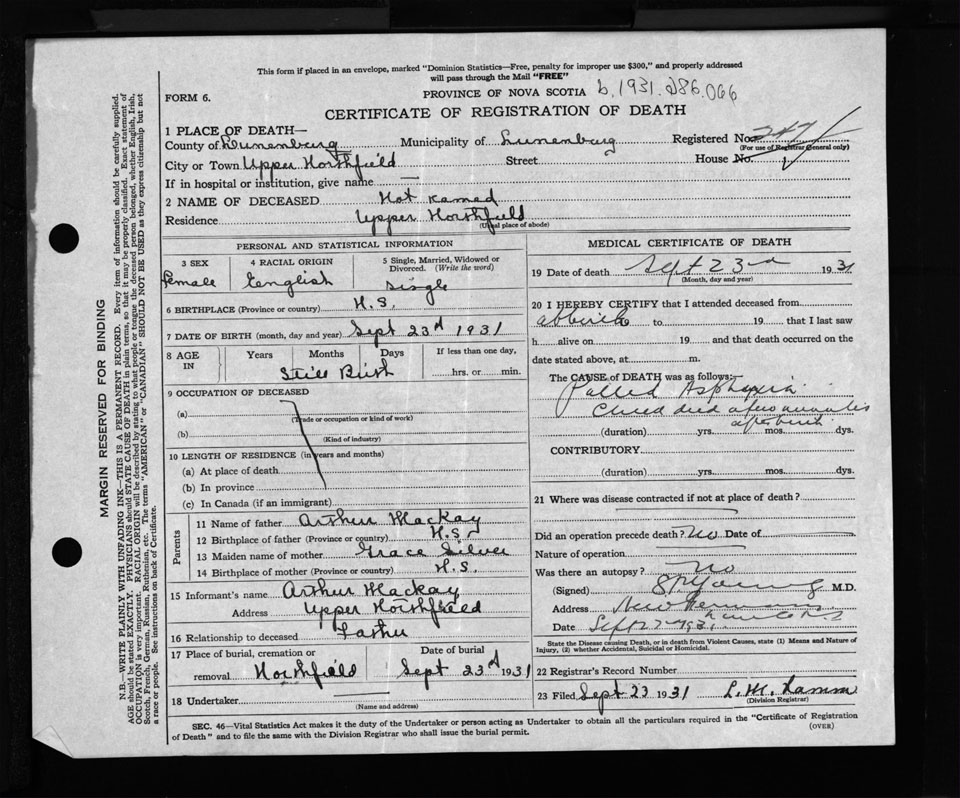 This form if placed in an envelope, marked "Dominion Statistics—Free, penalty for improper use $300," and properly addressed
will pass through the Mail "FREE"
FORM 6.
PROVINCE OF NOVA SCOTIA b.1931.286.066
CERTIFICATE OF REGISTRATION OF DEATH
1 PLACE OF DEATH—
County of Lunenburg Municipality of Lunenburg Registered No.
(For use of Registrar General only)
City or Town Upper Northfield Street House No.
If in hospital or institution, give name —
2 NAME OF DECEASED Not named
Residence Upper Northfield
(Usual place of abode)
PERSONAL AND STATISTICAL INFORMATION
3 SEX
Female
4 RACIAL ORIGIN
English
5 Single, Married, Widowed or
Divorced. (Write the word)
single
6 BIRTHPLACE (Province or country) N.S.
7 DATE OF BIRTH (month, day and year) Sept 23rd 1931
8 AGE
IN
Years Months Days
Still Birth
If less than one day,
hrs. or min.
9 OCCUPATION OF DECEASED
(a)
(Trade or occupation or kind of work)
(b)
(Kind of industry)
10 LENGTH OF RESIDENCE (in years and months)
(a) At place of death
(b) In province
(c) In Canada (if an immigrant)
Parents
11 Name of father Arthur Mackay
12 Birthplace of father (Province or country) N.S.
13 Maiden name of mother Grace Silver
14 Birthplace of mother (Province or country) N.S.
15 Informant's name Arthur Mackay
Address Upper Northfield
16 Relationship to deceased Father
17 Place of burial, cremation or Date of burial
removal Northfield Sept 23rd 1931
18 Undertaker
(Name and address)
MEDICAL CERTIFICATE OF DEATH
19 Date of death Sept 23rd 1931
(Month, day and year)
20 I HEREBY CERTIFY that I attended deceased from
at birth to 19 that I last saw
h alive on 19 and that death occurred on the
date stated above, at m.
The CAUSE OF DEATH was as follows:
Pallid Asphyxia
Child died a few minutes
after birth
(duration) yrs. mos. dys.
CONTRIBUTORY
(duration) yrs. mos. dys.
21 Where was disease contracted if not at place of death?
Did an operation precede death? No Date of
Nature of operation
Was there an autopsy? No
(Signed) M.D.
Address New Germany
Date Sept 1931
State the Disease Causing Death, or in death from Violent Causes, state (1) Means and Nature of
Injury, (2) whether Accidental, Suicidal or Homicidal.
22 Registrar's Record Number
23 Filed Sept 23 1931 L. M. Lamm
(Division Registrar)
SEC. 46—Vital Statistics Act makes it the duty of the Undertaker or person acting as Undertaker to obtain all the particulars required in the "Certificate of Registration
of Death" and to file the same with the Division Registrar who shall issue the burial permit.
(OVER)
MARGIN RESERVED FOR BINDING
N.B.—WRITE PLAINLY WITH UNFADING INK—THIS IS A PERMANENT RECORD. Every item of information should be carefully supplied.
AGE should be stated EXACTLY. PHYSICIANS should STATE CAUSE OF DEATH in plain terms, so that it may be properly classified. Exact statement of
OCCUPATION is very important. RACIAL ORIGIN will be described by stating to what people or tongue the deceased person belonged, whether English, Irish,
Scotch, French, German, Russian, Ruthenian, etc. The terms "AMERICAN" or "CANADIAN" SHOULD NOT BE USED as they express citizenship but not
a race or people. See instructions on back of Certificate.